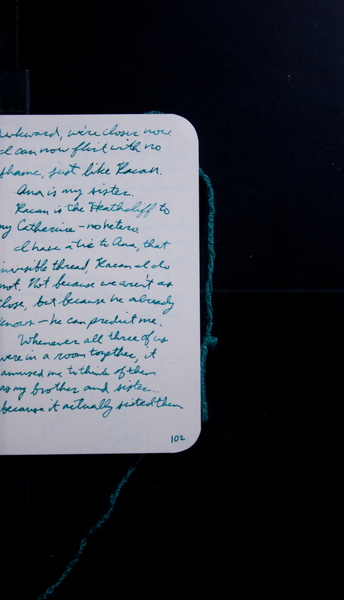 awkward, we're closer now
I can now flirt with no
shame, just like Kacan.
Ana is my sister.
Kacan is the Heathcliff to
my Catherine - no hetero.
I have a tie to Ana, that
invisible thread, Kacan I do
not. Not because we aren't as
close, but because he already
knows - he can predict me.
Whenever all three of us
were in a room together, it
amused me to think of them
as my brother and sister...
because it actually suited them
102